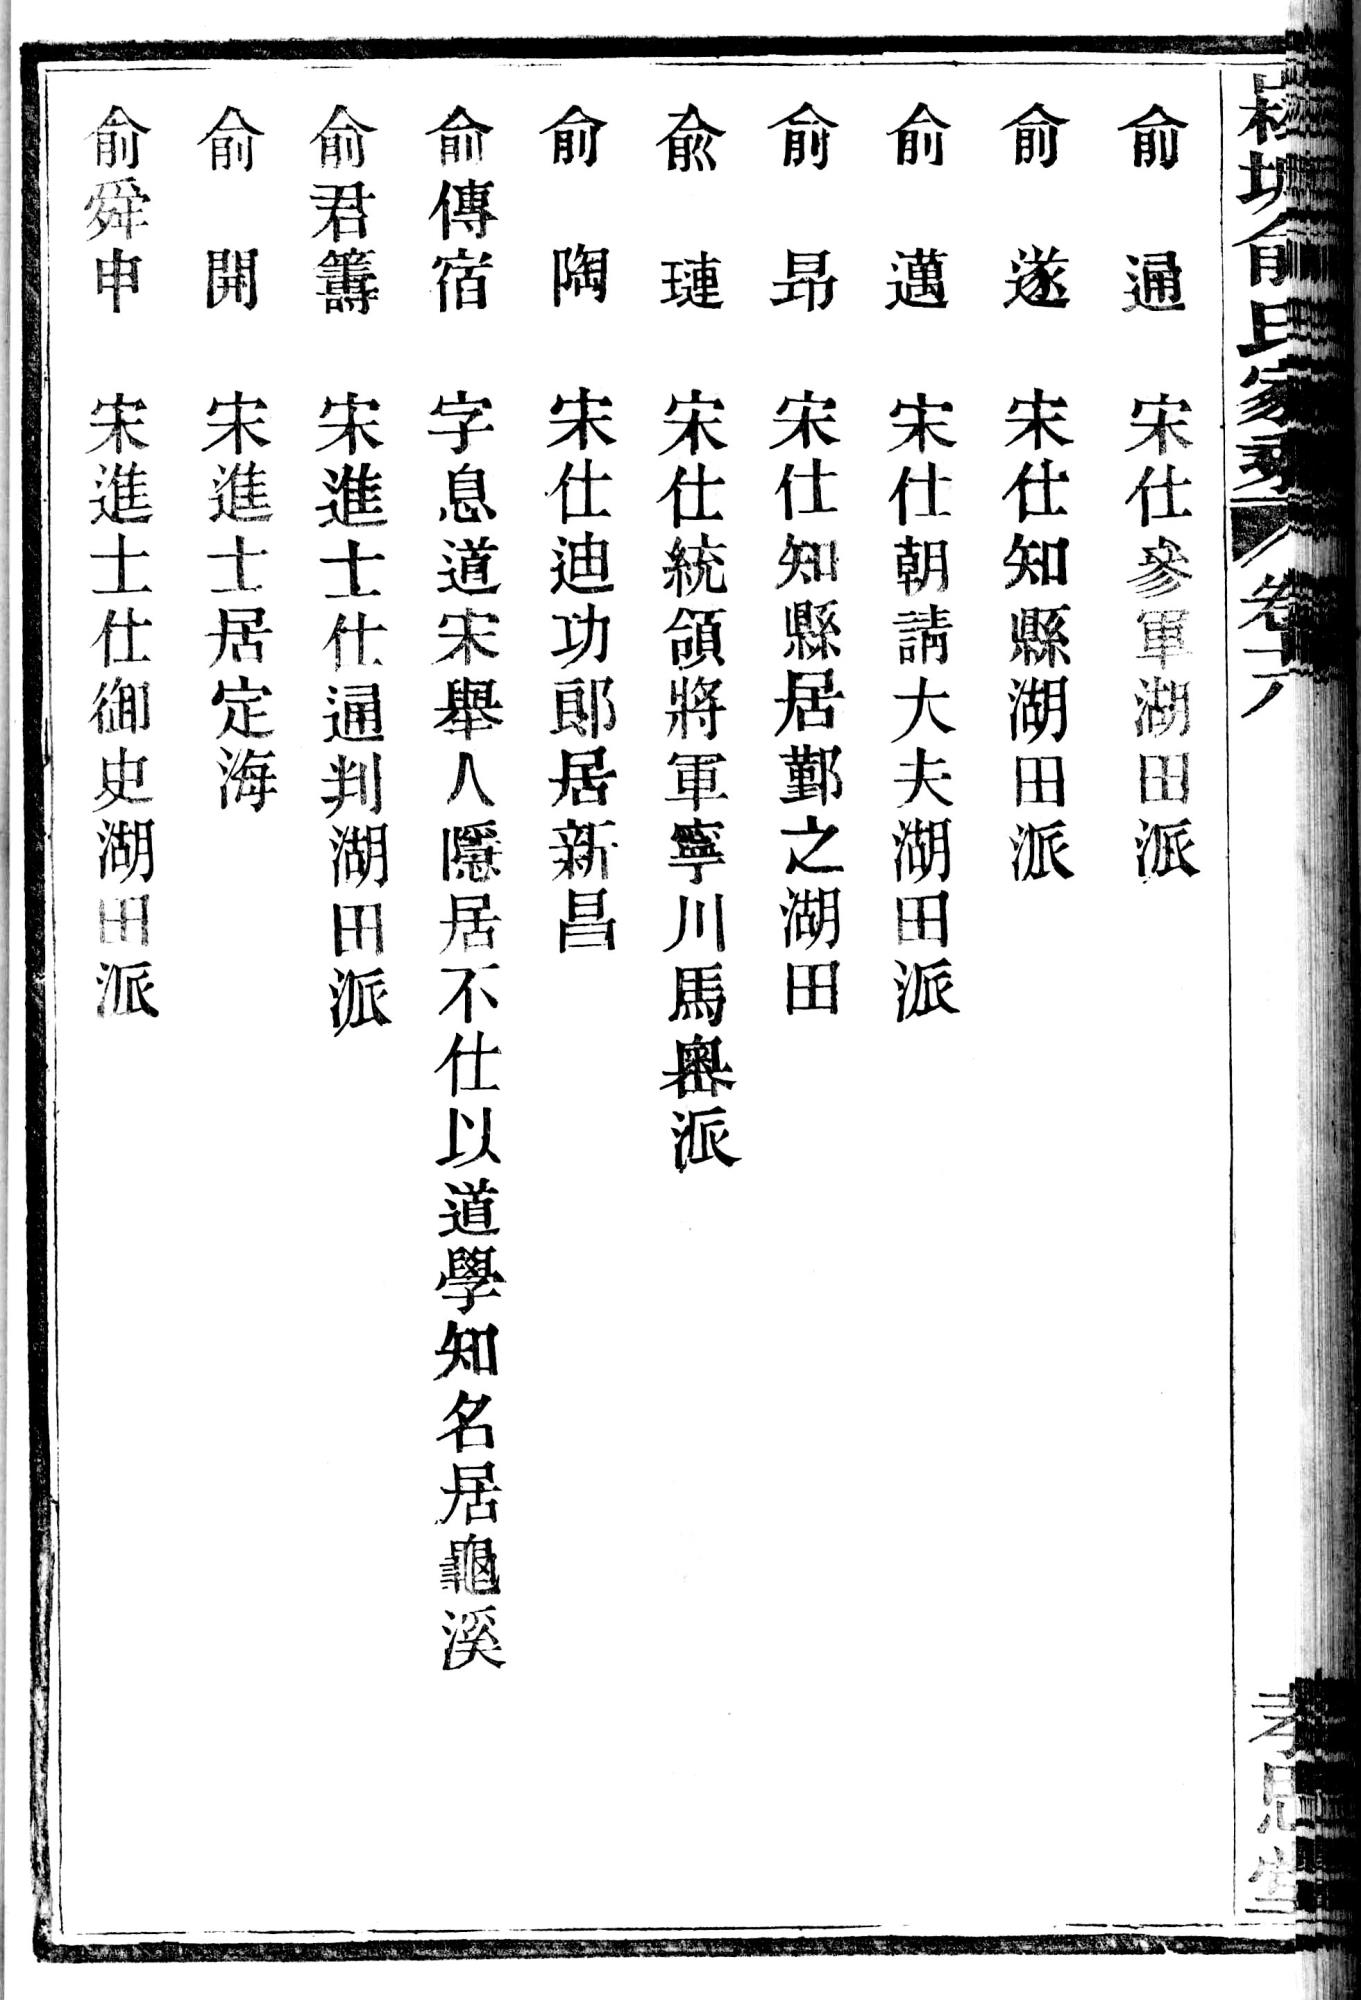 俞氏家乘 卷十六
俞通 宋仕參軍湖田派
俞遂 宋仕知縣湖田派
俞邁 宋仕朝請大夫湖田派
俞昂 宋仕知縣居鄞之湖田
俞璉 宋仕統領將軍寧川馬嶴派
俞陶 宋仕迪功郎居新昌
俞傳宿 字息道宋舉人隱居不仕以道學知名居龜溪
俞君籌 宋進士仕通判湖田派
俞開 宋進士居定海
俞舜申 宋進士仕御史湖田派
孝思堂